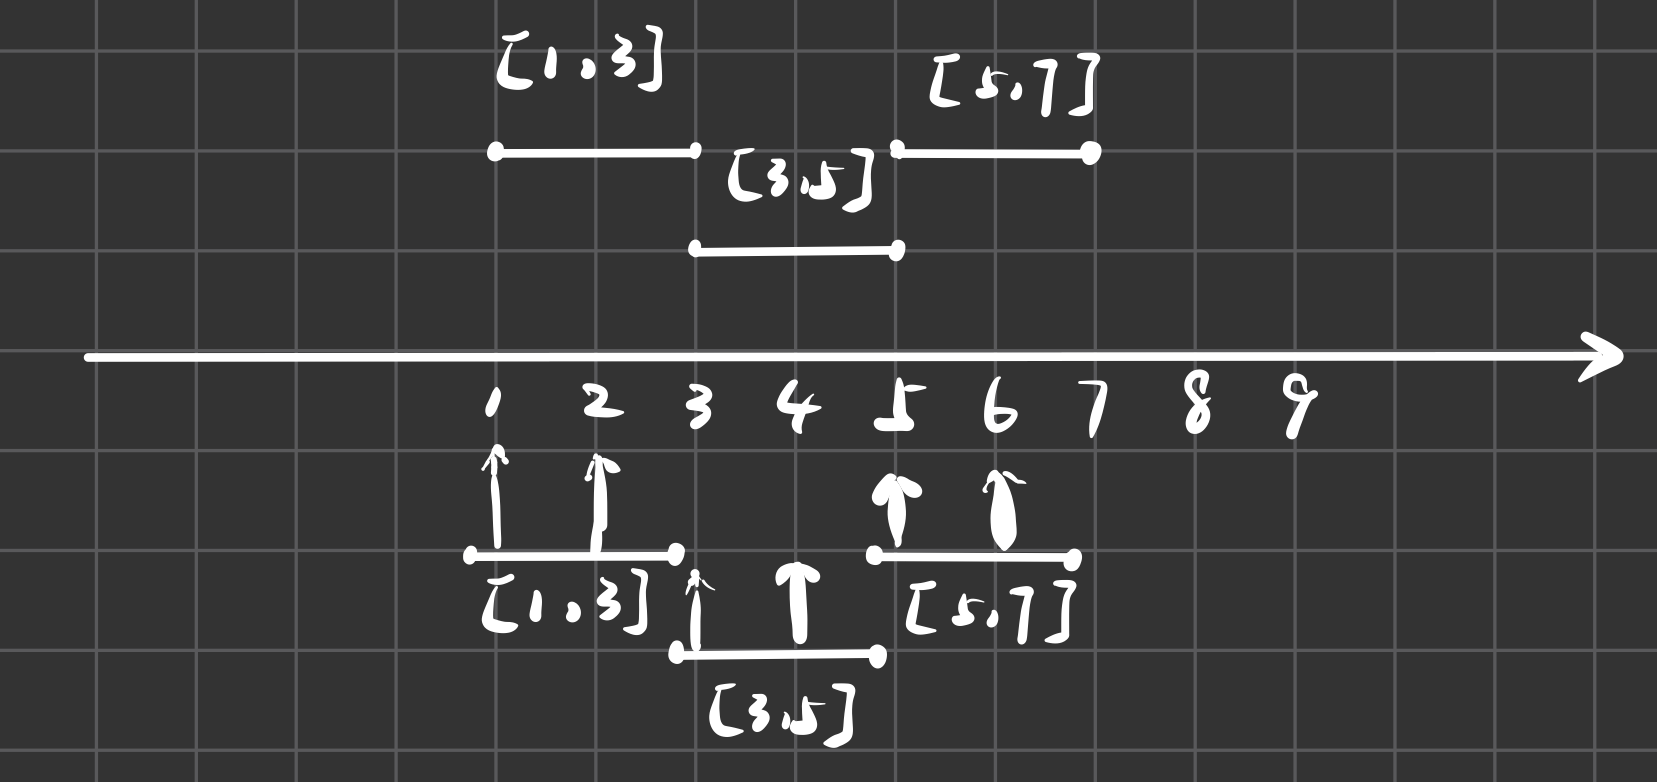 [1,3]
[5,7]
[3,5]
1 2 3 4 5 6 7 8 9
[1,3]
[5,7]
[3,5]